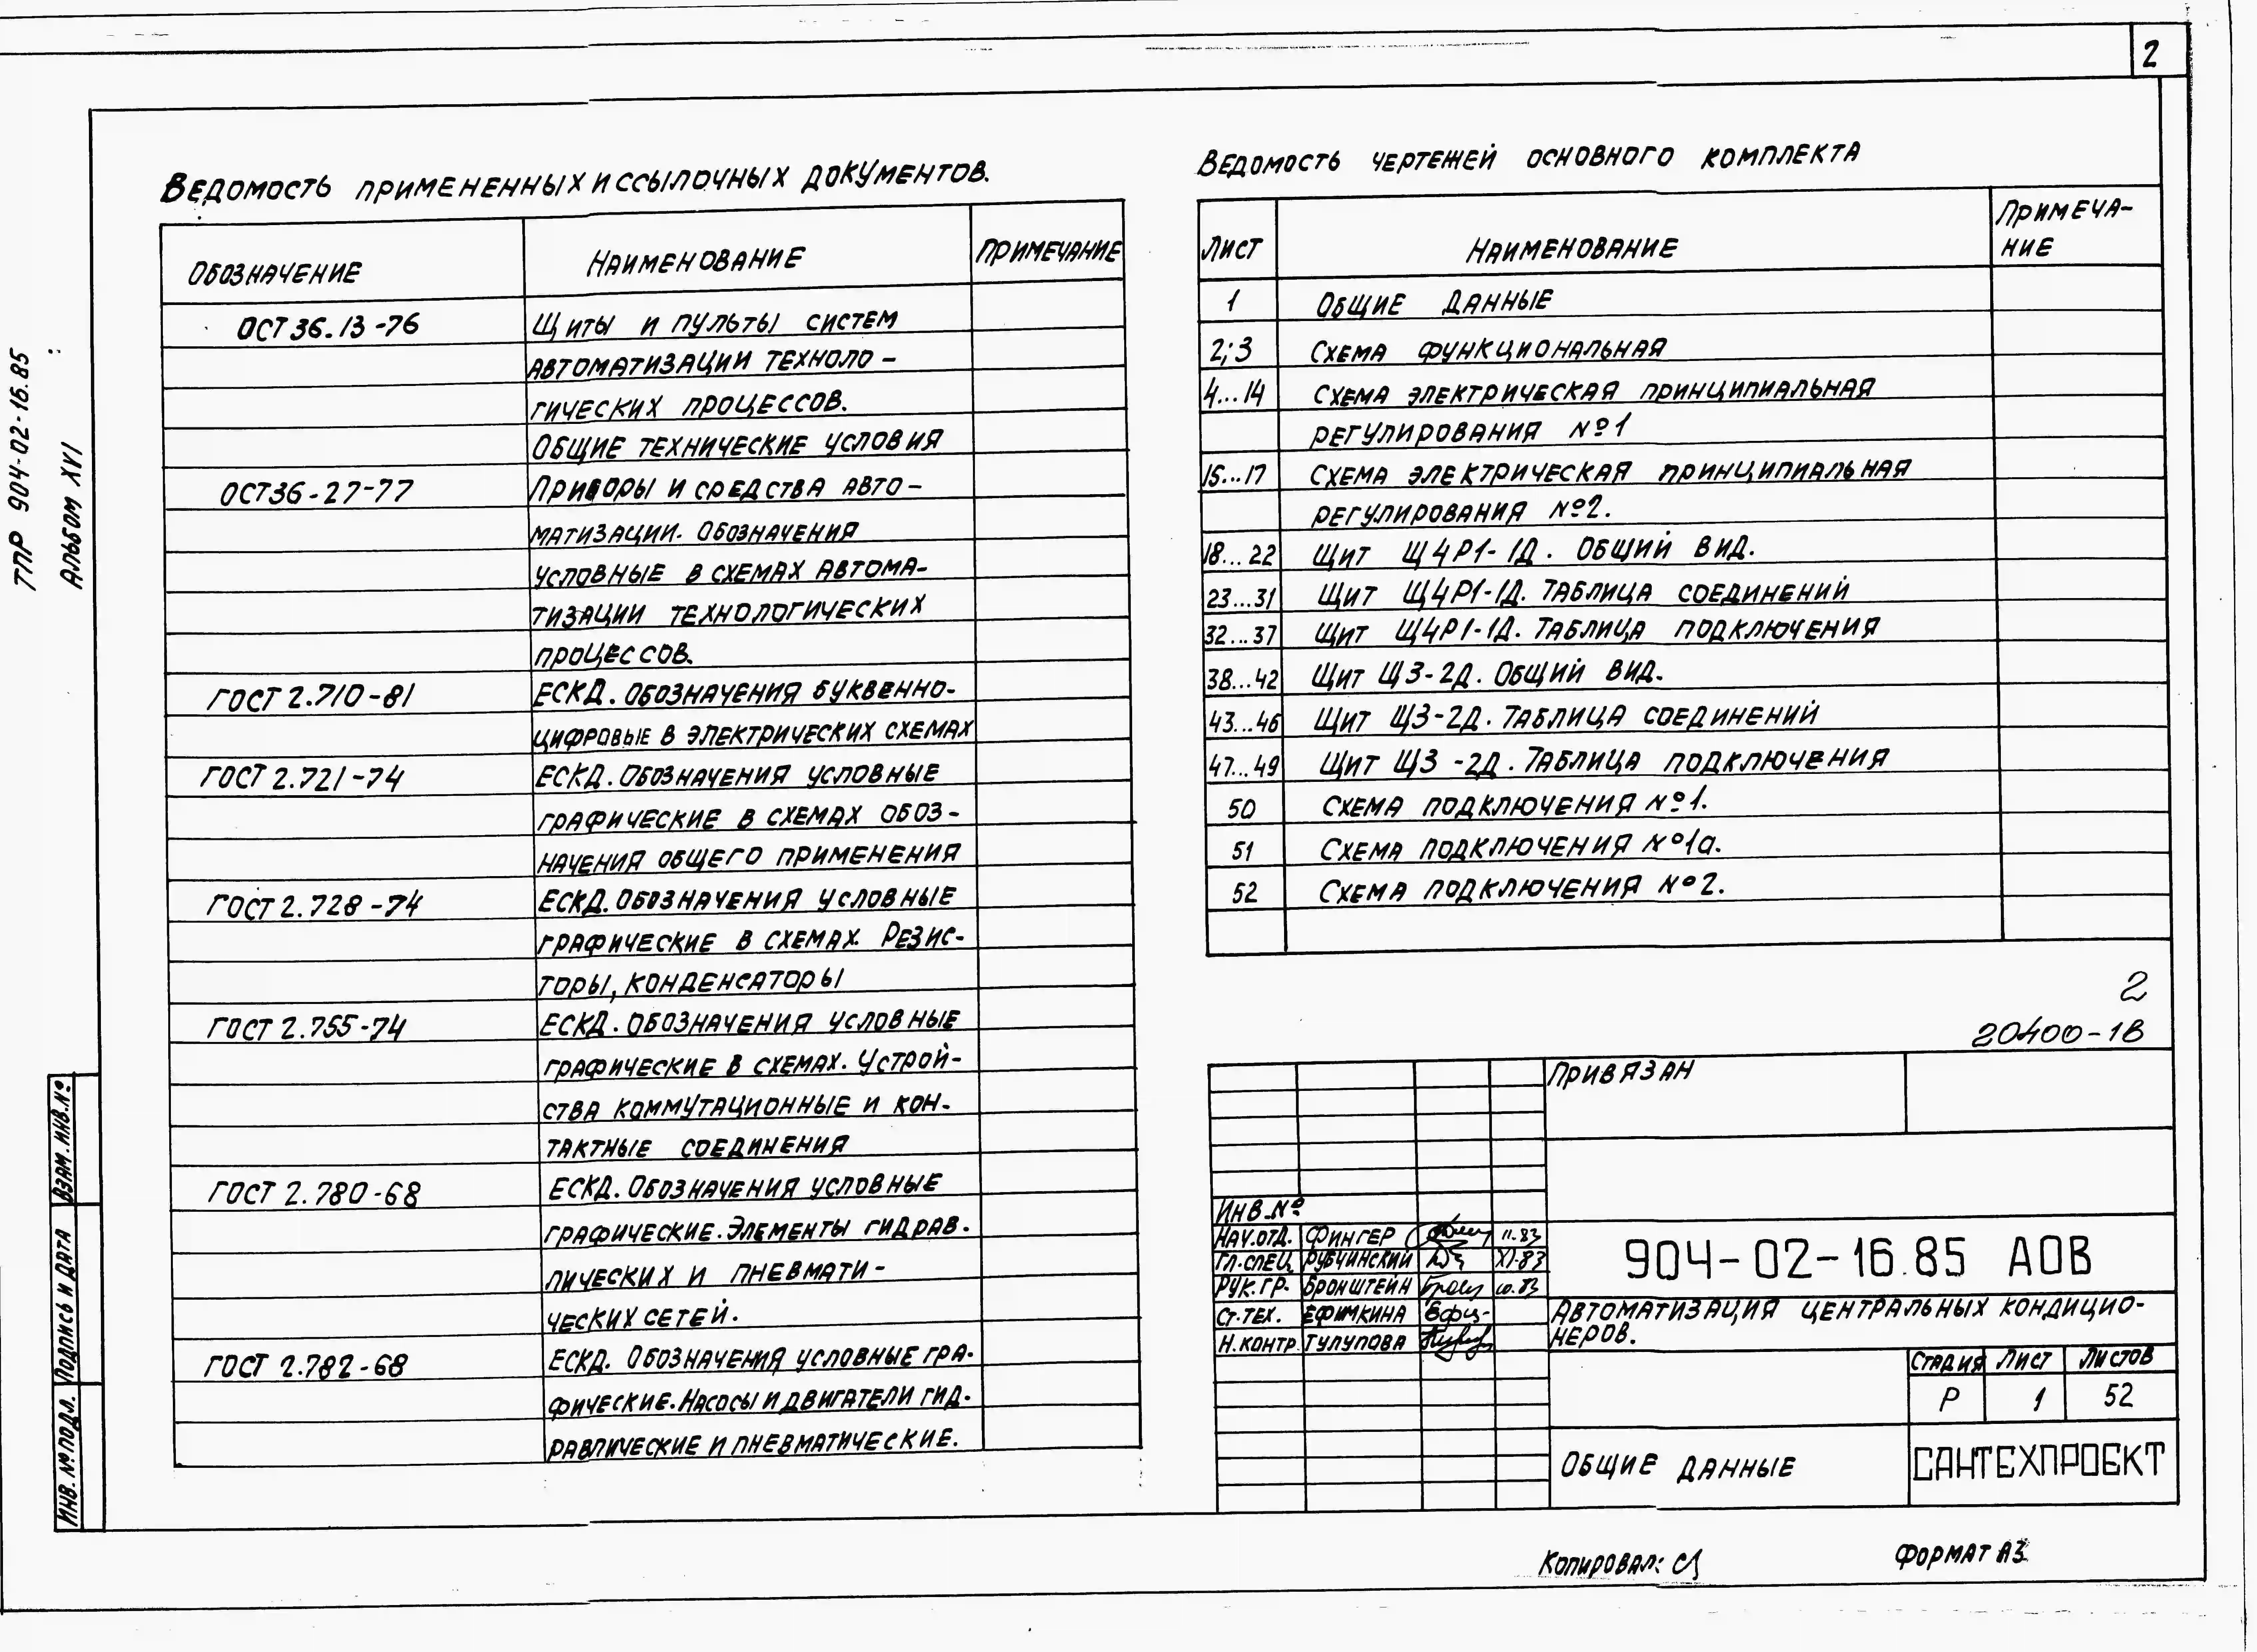 2
ТПР 904-02-16.85
Альбом XVI
Ведомость примененных и ссылочных документов.
Обозначение Наименование Примечание
ОСТ 36.13-76 Щиты и пульты систем
автоматизации техноло-
гических процессов.
Общие технические условия
ОСТ36-27-77 Приборы и средства авто-
матизации. Обозначения
условные в схемах автома-
тизации технологических
процессов.
ГОСТ 2.710-81 ЕСКД. Обозначения буквенно-
цифровые в электрических схемах
ГОСТ 2.721-74 ЕСКД. Обозначения условные
графические в схемах обоз-
начения общего применения
ГОСТ 2.728-74 ЕСКД. Обозначения условные
графические в схемах. Резис-
торы, конденсаторы
ГОСТ 2.755-74 ЕСКД. Обозначения условные
графические в схемах. Устрой-
ства коммутационные и кон-
тактные соединения
ГОСТ 2.780-68 ЕСКД. Обозначения условные
графические. Элементы гидрав-
лических и пневмати-
ческих сетей.
ГОСТ 2.782-68 ЕСКД. Обозначения условные гра-
фические. Насосы и двигатели гид-
равлические и пневматические.
Ведомость чертежей основного комплекта
Лист Наименование Примеча-
ние
1 Общие данные
2;3 Схема функциональная
4...14 Схема электрическая принципиальная
регулирования №1
15...17 Схема электрическая принципиальная
регулирования №2.
18...22 Щит Щ4Р1-1Д. Общий вид.
23...31 Щит Щ4Р1-1Д. Таблица соединений
32...37 Щит Щ4Р1-1Д. Таблица подключения
38...42 Щит Щ3-2Д. Общий вид.
43...46 Щит Щ3-2Д. Таблица соединений
47...49 Щит Щ3-2Д. Таблица подключения
50 Схема подключения №1.
51 Схема подключения №1а.
52 Схема подключения №2.
2
20400-18
Привязан
Инв.№
Нач.отд. Фингер 11.83
Гл.спец. Рубчинский XI-83
Рук.гр. Бронштейн 10.83
Ст.тех. Ефимкина
Н.контр. Тулупова
904-02-16.85 АОВ
Автоматизация центральных кондицио-
неров.
Стадия Лист Листов
Р 1 52
Общие данные
САНТЕХПРОЕКТ
Взам.инв.№
Подпись и дата
Инв.№подл.
Копировал:
Формат А3